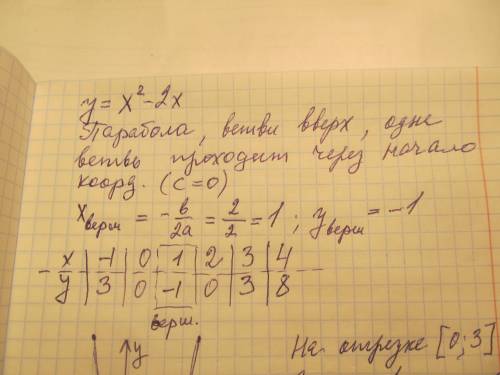 y = x² - 2x
Парабола, ветви вверх, одна
ветвь проходит через начало
коорд. (c = 0)
x верш = - b/2a = 2/2 = 1 ; y верш = -1
x | -1 | 0 | 1 | 2 | 3 | 4
y | 3 | 0 | -1 | 0 | 3 | 8
верш.
y
На отрезке [0; 3]